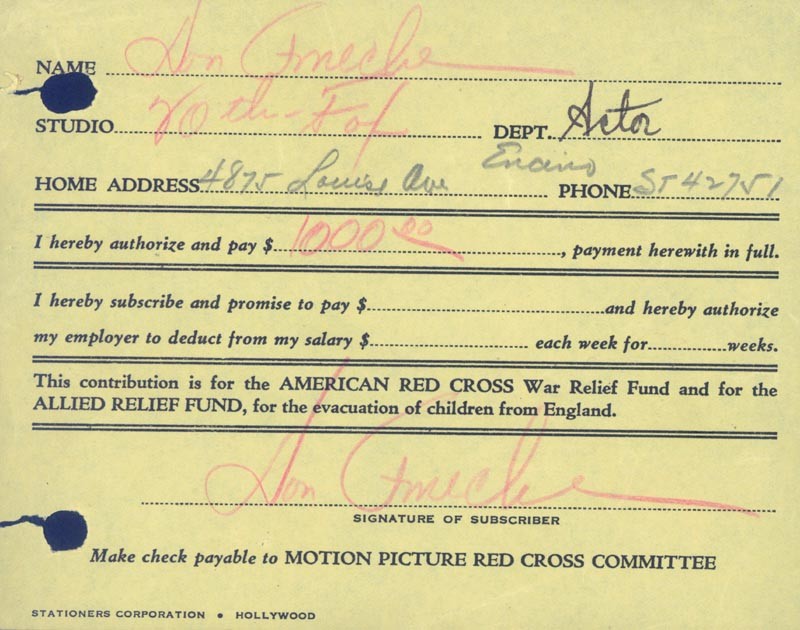 NAME Don Ameche
STUDIO 20th-Fox DEPT. Actor
HOME ADDRESS 4875 Louise Ave Encino PHONE ST 42751
I hereby authorize and pay $ 1000.00, payment herewith in full.
I hereby subscribe and promise to pay $ and hereby authorize
my employer to deduct from my salary $ each week for weeks.
This contribution is for the AMERICAN RED CROSS War Relief Fund and for the
ALLIED RELIEF FUND, for the evacuation of children from England.
Don Ameche
SIGNATURE OF SUBSCRIBER
Make check payable to MOTION PICTURE RED CROSS COMMITTEE
STATIONERS CORPORATION • HOLLYWOOD